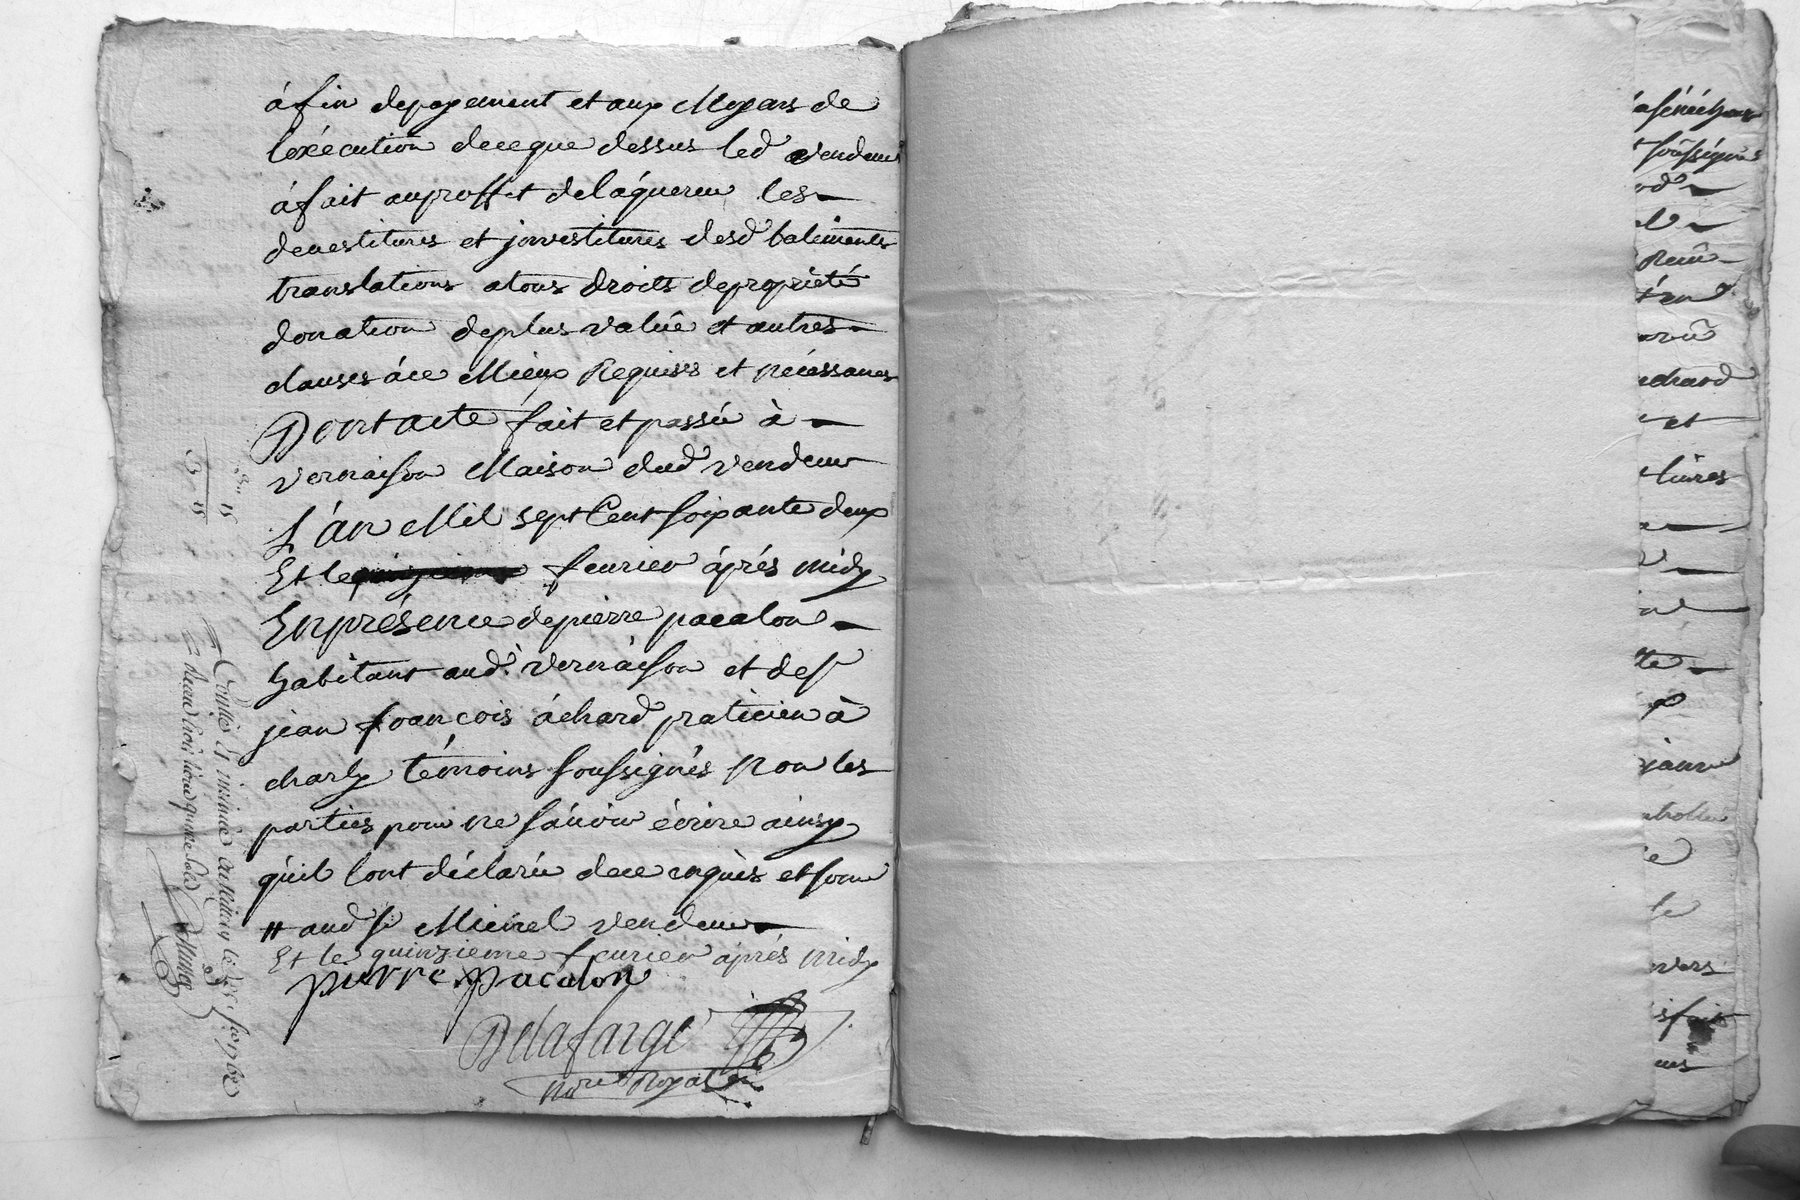 áfin depayement et aux Moyens de
l'éxécution de ce que dessus led vendeur
á fait au proffit de l'áquereur les
devestitures et jnvestitures desd batiments
translations atous droits de proprieté
donation de plus valüe et autres
clauses áce Mieux Requises et nécessaires
Dont acte fait et passée à
vernaison Maison dud vendeur
L'án Mil sept Cent soixante deux
Et le fevrier áprés midy
En présence de pierre pacalon
habitant aud. vernaison et de sr
jean françois áchard praticien à
charly témoins soussignés Non les
parties pour ne sávoir écrire ainsy
qu'il l'ont déclarée de ce enquis et somé
# aud sr Michel vendeur
Et le quinzieme fevrier áprés midy
pierre Pacalon
Delafarge
Nore Royal
Conllé Et insinué
15
15
soussignés
et
livres
et
vers